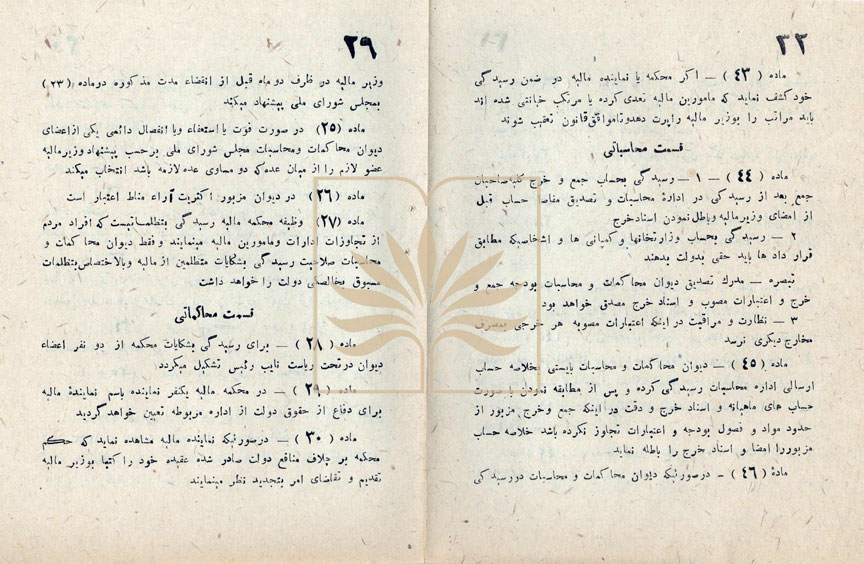 ۳۲
ماده (۴۳) – اگر محکمه یا نماینده مالیه در ضمن رسیدگی
خود کشف نماید که مامورین مالیه تعدی کرده یا مرتکب خیانتی شده اند
باید مراتب را بوزیر مالیه راپرت دهد تا موافق قانون تعقیب شوند
قسمت محاسباتی
ماده (۴۴) – ۱ – رسیدگی بحساب جمع و خرج کلیه صاحبان
جمع بعد از رسیدگی در ادارۀ محاسبات و تصدیق مفاصا حساب قبل
از امضای وزیر مالیه و باطل نمودن اسناد خرج
۲ – رسیدگی بحساب وزارتخانها و کمپانی ها و اشخاصیکه مطابق
قرار داد ها باید حقی بدولت بدهند
تبصره – مدرك تصدیق دیوان محاکمات و محاسبات بودجه جمع و
خرج و اعتبارات مصوب و اسناد خرج مصدق خواهد بود
۳ – نظارت و مراقبت در اینکه اعتبارات مصوبه هر خرجی بمصرف
مخارج دیگری نرسد
ماده (۴۵) – دیوان محاکمات و محاسبات بایستی بخلاصه حساب
ارسالی اداره محاسبات رسیدگی کرده و پس از مطابقه نمودن با صورت
حساب های ماهیانه و اسناد خرج و دقت در اینکه جمع و خرج مزبور از
حدود مواد و فصول بودجه و اعتبارات تجاوز نکرده باشد خلاصه حساب
مزبور را امضا و اسناد خرج را باطله نماید
مادۀ (۴۶) – درصورتیکه دیوان محاکمات و محاسبات در رسیدگی
۲۹
وزیر مالیه در ظرف دو ماه قبل از انقضاء مدت مذکوره در ماده (۲۳)
بمجلس شورای ملی پیشنهاد میکند
ماده (۲۵) در صورت فوت یا استعفاء و یا انفصال دائمی یکی از اعضای
دیوان محاکمات ومحاسبات مجلس شورای ملی برحسب پیشنهاد وزیر مالیه
عضو لازم را از میان عده که دو مساوی عده لازمه باشد انتخاب میکند
ماده (۲۶) در دیوان مزبور اکثریت آراء مناط اعتبار است
ماده (۲۷) وظیفه محکمه مالیه رسیدگی بتظلماتیست که افراد مردم
از تجاوزات ادارات ومامورین مالیه مینمایند و فقط دیوان محاکمات و
محاسبات صلاحیت رسیدگی بشکایات متظلمین از مالیه و بالاختصاص بتظلمات
مسبوق بخالصگی دولت را خواهد داشت
قسمت محاکماتی
ماده (۲۸) – برای رسیدگی بشکایات محکمه از دو نفر اعضاء
دیوان در تحت ریاست نایب رئیس تشکیل میگردد
ماده (۲۹) – در محکمه مالیه یکنفر نماینده باسم نمایندۀ مالیه
برای دفاع از حقوق دولت از اداره مربوطه تعیین خواهد گردید
ماده (۳۰) – درصورتیکه نماینده مالیه مشاهده نماید که حکم
محکمه بر خلاف منافع دولت صادر شده عقیده خود را کتبا بوزیر مالیه
تقدیم و تقاضای امر بتجدید نظر مینمایند